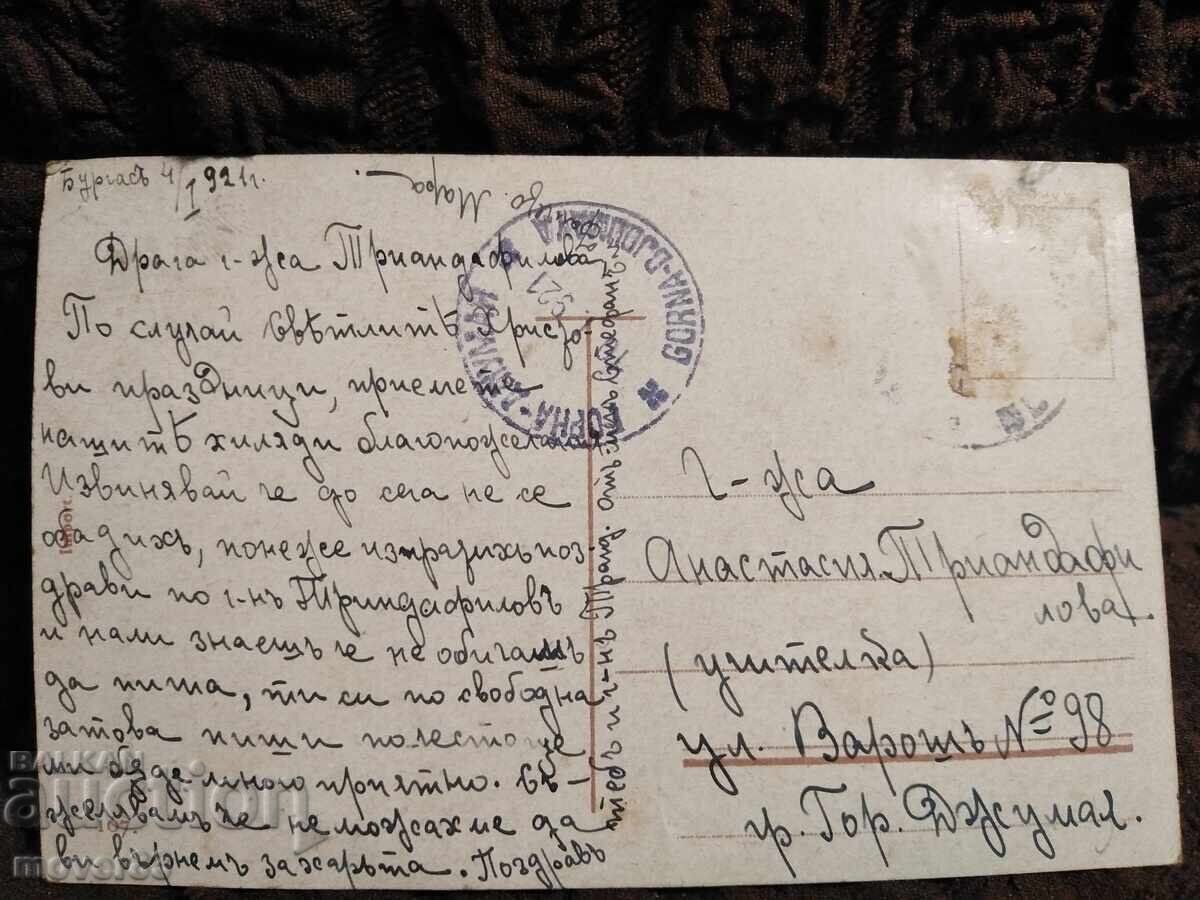 Бургасъ 4/I 921 г.
Драга г-жа Триандафилова
По случай Свѣтлитѣ Христо-
ви праздници, приемете
нашитѣ хиляди благопожелания
Извинявай че до сега не се
обадихъ, понеже изпратихъ поз-
драви по г-нъ Триндафиловъ
и нали знаешъ че не обичамъ
да пиша, ти си по свободна
затова пиши почесто ще
ми бѫде много приятно. Съ-
жалявамъ че не можахме да
ви върнемъ захарьта. Поздравъ
тебъ и г-нъ Трианд. отъ менъ и Стефанъ
Мара
ГОРНА-ДЖУМАЯ
GORNA-DJOUMAYA
Import.
Г-жа
Анастасия Триандафи
лова.
(учителка)
ул. Варошъ № 98
гр. Гор. Джумая.
БАЛКАН
auction
mover68